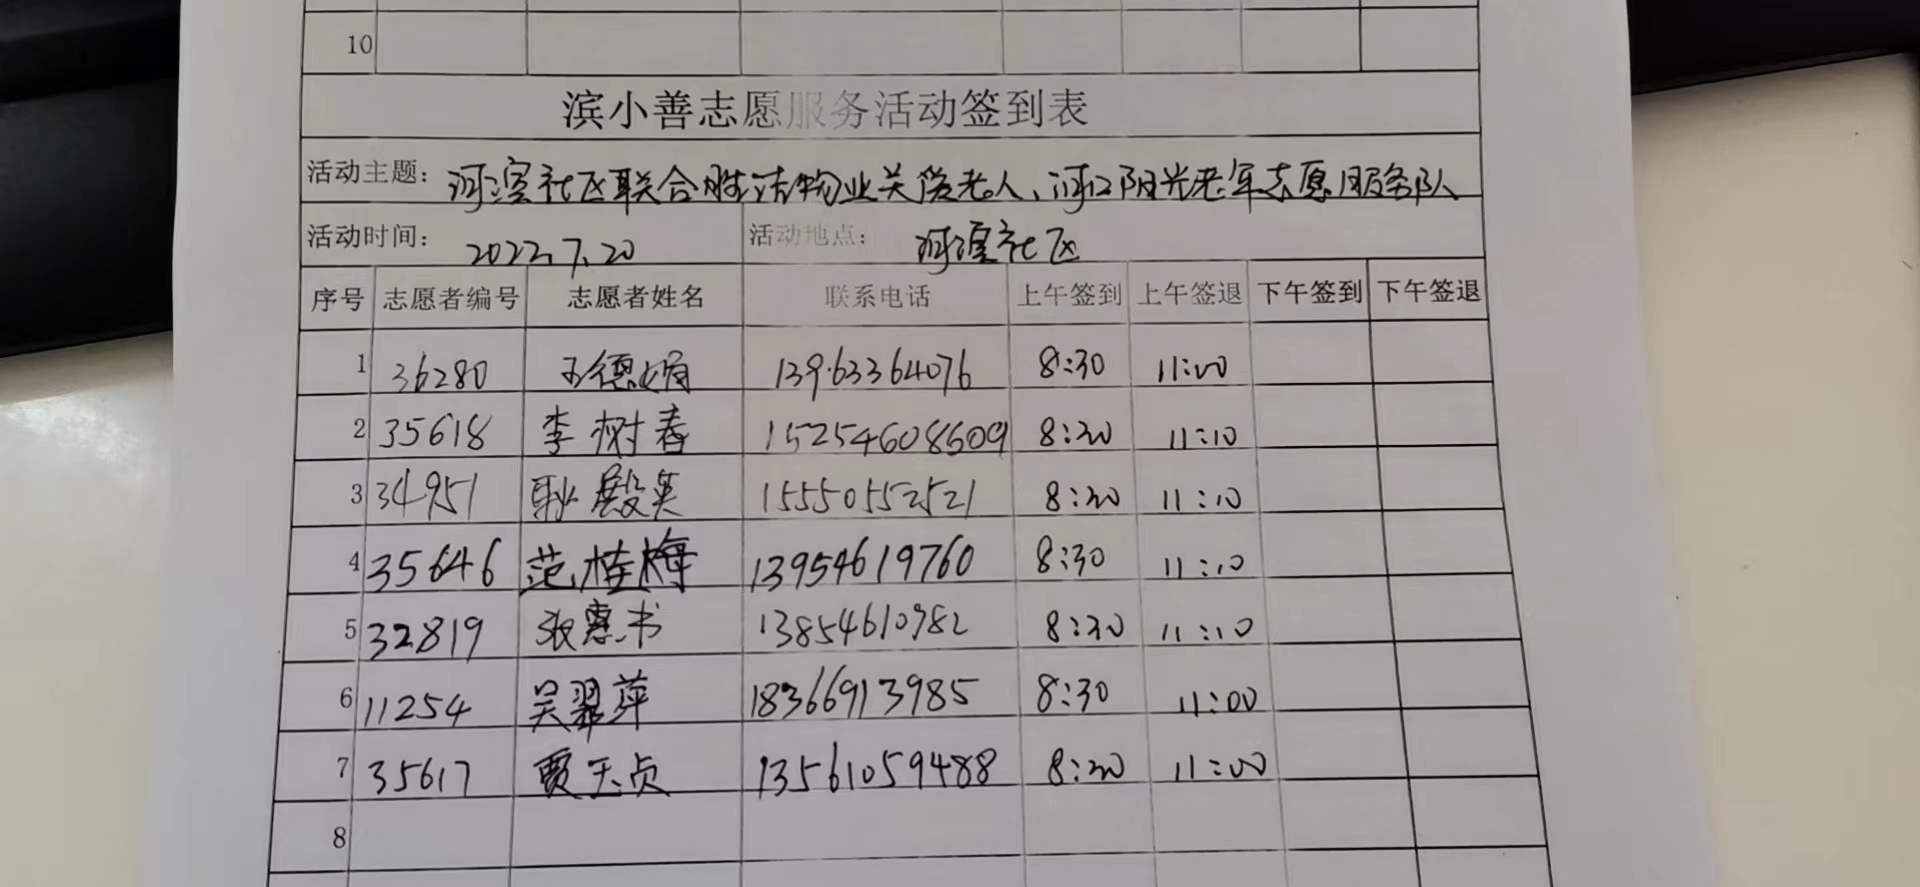 10
滨小善志愿服务活动签到表
活动主题: 河滨社区联合胜洁物业关爱老人、河口阳光老年志愿服务队
活动时间: 2022.7.20 活动地点: 河滨社区
序号 志愿者编号 志愿者姓名 联系电话 上午签到 上午签退 下午签到 下午签退
1 36280 王德娟 13963364076 8:30 11:00
2 35618 李树春 15254608609 8:30 11:10
3 34951 耿殿英 15550552521 8:30 11:10
4 35646 范桂梅 13954619760 8:30 11:10
5 32819 张惠书 13854610982 8:30 11:10
6 11254 吴翠萍 18366913985 8:30 11:00
7 35617 贾玉贞 13561059488 8:30 11:00
8